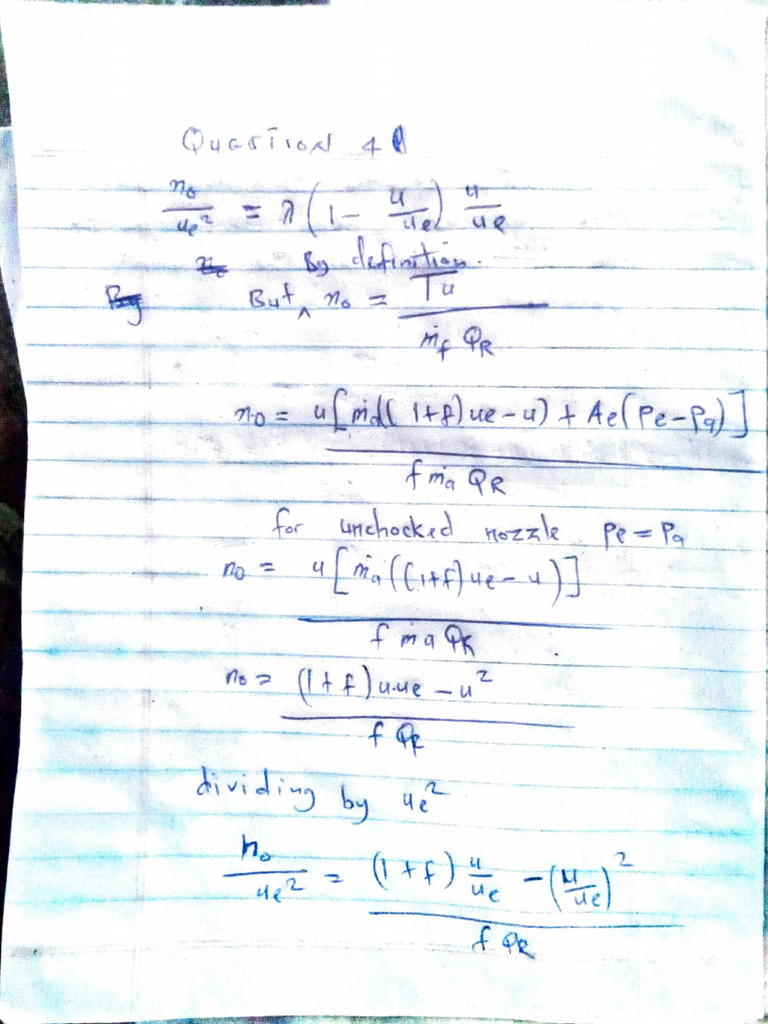 Question 4
η₀/ue² = λ(1 - u/ue) u/ue
By definition.
But ^ η₀ = Tu / ṁf QR
η₀ = u[ṁa((1+f)ue - u) + Ae(Pe - Pa)] / f ṁa QR
for unchocked nozzle Pe = Pa
η₀ = u[ṁa((1+f)ue - u)] / f ṁa QR
η₀ = (1+f)u.ue - u² / f QR
dividing by ue²
η₀/ue² = (1+f) u/ue - (u/ue)² / f QR